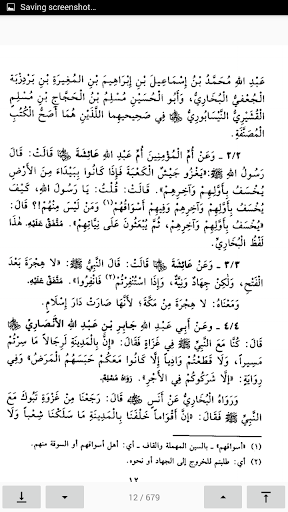 Saving screenshot...
عَبْدِ اللهِ مُحَمَّدُ بْنُ إِسْمَاعِيلَ بْنِ إِبْرَاهِيمَ بْنِ المُغِيرَةِ بْنِ بَرْدِزْبَهْ
الجُعْفِيُّ البُخَارِيُّ، وَأَبُو الحُسَيْنِ مُسْلِمُ بْنُ الحَجَّاجِ بْنِ مُسْلِمٍ
القُشَيْرِيُّ النَّيْسَابُورِيُّ ﷺ فِي صَحِيحيهِما اللَّذَيْنِ هُمَا أَصَحُّ الْكُتُبِ
المُصَنَّفَةِ.
٢/٢ - وَعَنْ أُمِّ المُؤْمِنِينَ أُمِّ عَبْدِ اللهِ عَائِشَةَ قَالَتْ: قَالَ
رَسُولُ اللهِ ﷺ: «يَغْزُو جَيْشٌ الْكَعْبَةَ فَإِذَا كَانُوا بِبَيْدَاءَ مِنَ الأَرْضِ
يُخْسَفُ بِأَوَّلِهِمْ وَآخِرِهِمْ». قَالَتْ: قُلْتُ: يَا رَسُولَ اللهِ، كَيْفَ
يُخْسَفُ بِأَوَّلِهِمْ وَآخِرِهِمْ وَفِيهِمْ أَسْوَاقُهُمْ(١) وَمَنْ لَيْسَ مِنْهُمْ؟! قَالَ:
«يُخْسَفُ بِأَوَّلِهِمْ وَآخِرِهِمْ، ثُمَّ يُبْعَثُونَ عَلَى نِيَّاتِهِمْ». مُتَّفَقٌ عَلَيْهِ. هَذَا
لَفْظُ الْبُخَارِيِّ.
٣/٣ - وَعَنْ عَائِشَةَ قَالَتْ: قَالَ النَّبِيُّ ﷺ: «لا هِجْرَةَ بَعْدَ
الْفَتْحِ، وَلَكِنْ جِهَادٌ وَنِيَّةٌ، وَإِذَا اسْتُنْفِرْتُمْ(٢) فَانْفِرُوا». مُتَّفَقٌ عَلَيْهِ.
وَمَعْنَاهُ: لا هِجْرَةَ مِنْ مَكَّةَ؛ لأَنَّهَا صَارَتْ دَارَ إِسْلامٍ.
٤/٤ - وَعَنْ أَبِي عَبْدِ اللهِ جَابِرِ بْنِ عَبْدِ اللهِ الأَنْصَارِيِّ
قَالَ: كُنَّا مَعَ النَّبِيِّ ﷺ فِي غَزَاةٍ فَقَالَ: «إِنَّ بِالْمَدِينَةِ لَرِجَالاً مَا سِرْتُمْ
مَسِيراً، وَلا قَطَعْتُمْ وَادِياً إِلَّا كَانُوا مَعَكُمْ حَبَسَهُمُ الْمَرَضُ» وَفِي
رِوَايَةٍ: «إِلَّا شَرَكُوكُمْ فِي الأَجْرِ». رَوَاهُ مُسْلِمٌ.
وَرَوَاهُ الْبُخَارِيُّ عَنْ أَنَسٍ قَالَ: رَجَعْنَا مِنْ غَزْوَةِ تَبُوكَ مَعَ
النَّبِيِّ ﷺ فَقَالَ: «إِنَّ أَقْوَاماً خَلْفَنَا بِالْمَدِينَةِ مَا سَلَكْنَا شِعْباً وَلا
(١) «أسواقهم» - بالسين المهملة والقاف - أي: أهل أسواقهم أو السوقة منهم.
(٢) أي: طلبتم للخروج إلى الجهاد أو نحوه.
١٢
12 / 679